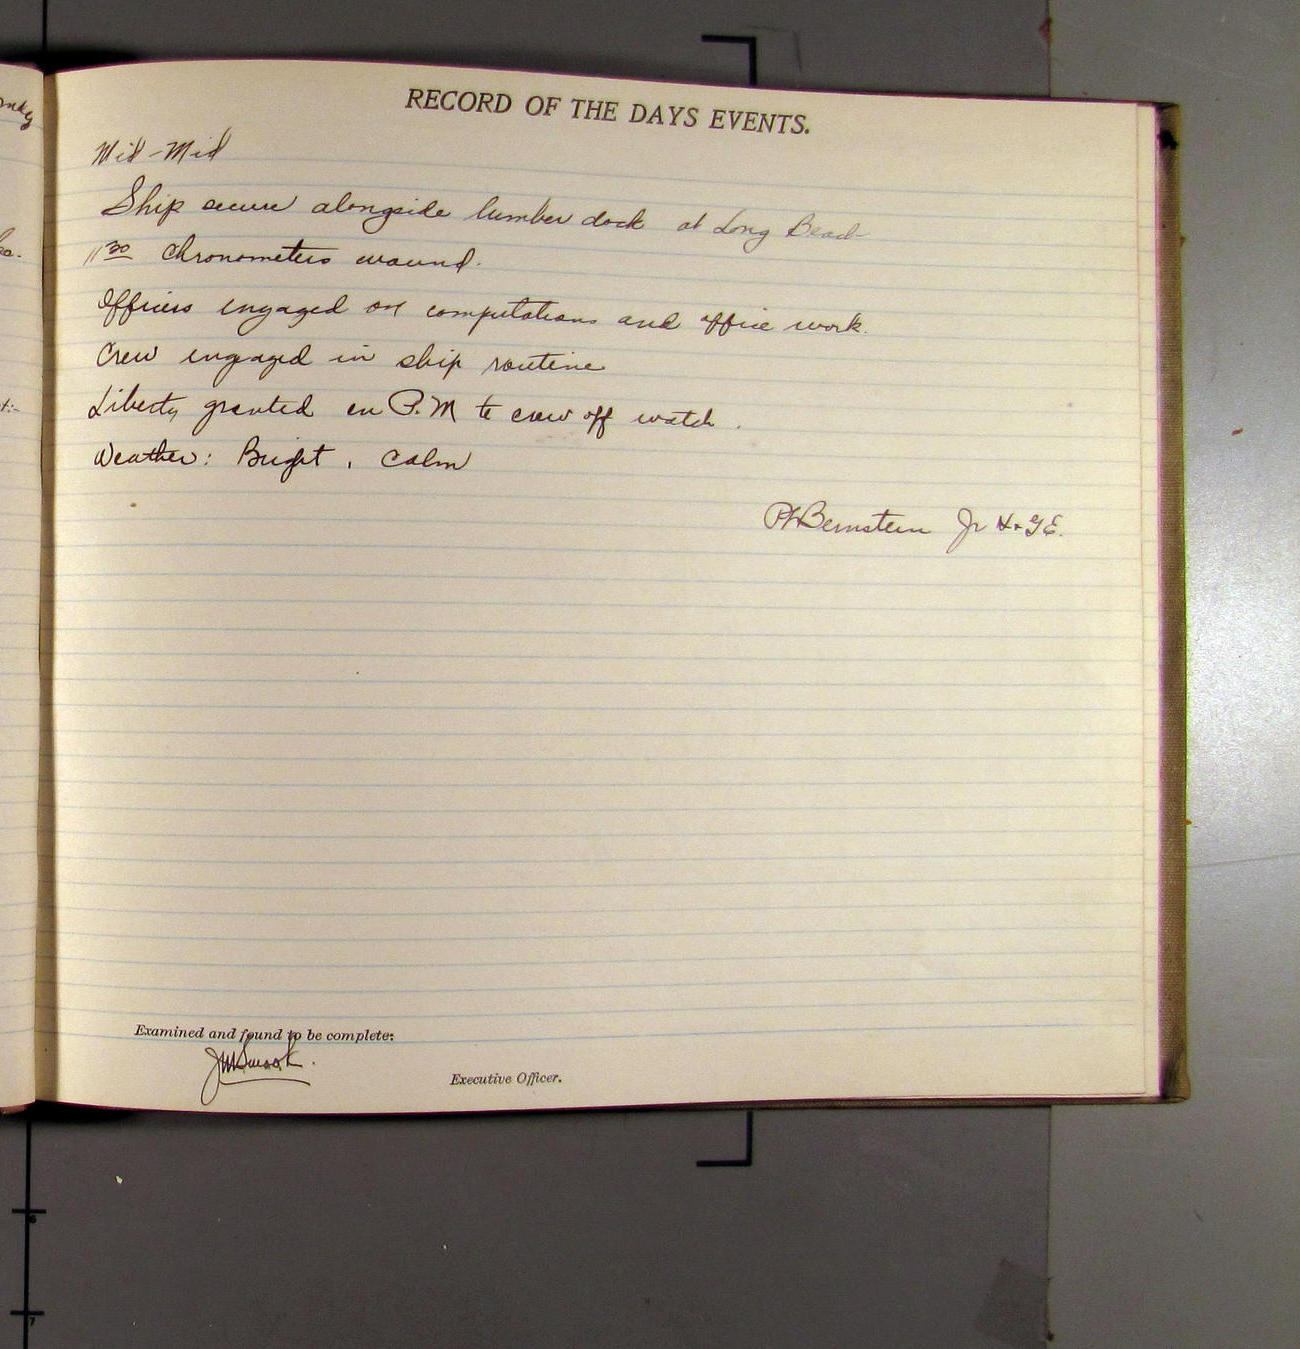 RECORD OF THE DAYS EVENTS.
Mid-Mid
Ship secure alongside lumber dock at Long Beach
11 30 Chronometers wound.
Officers engaged on computations and office work.
Crew engaged in ship routine
Liberty granted in P.M to crew off watch.
Weather: Bright, Calm
Bernstein Jr H.&G.E.
Examined and found to be complete:
Executive Officer.